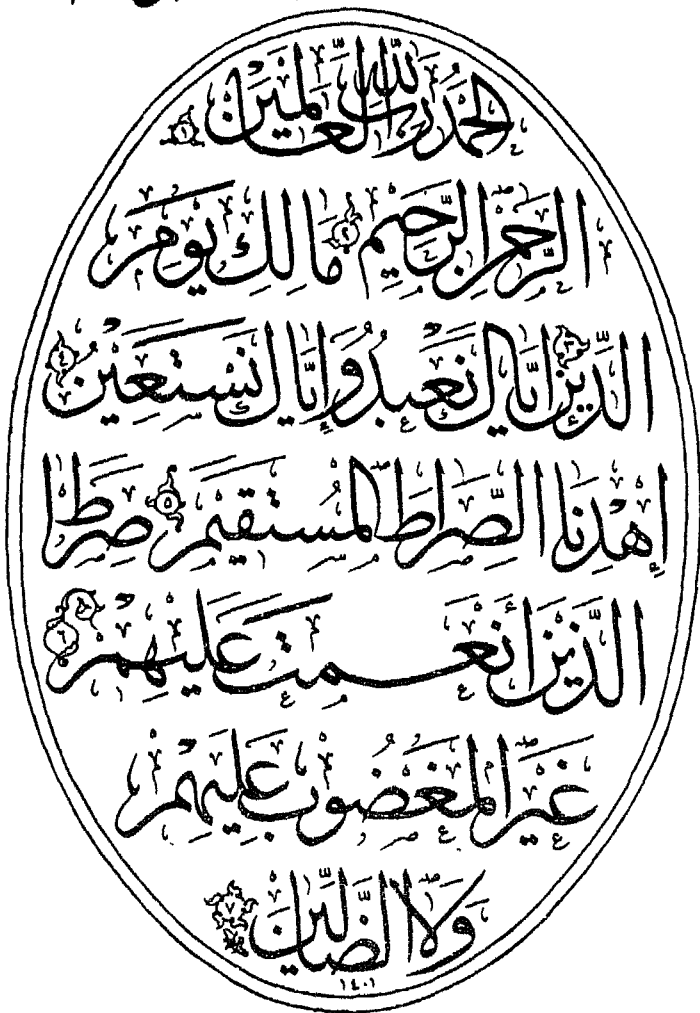 الْحَمْدُ لِلَّهِ رَبِّ الْعَالَمِينَ ١
الرَّحْمَنِ الرَّحِيمِ ٢ مَالِكِ يَوْمِ
الدِّينِ ٣ إِيَّاكَ نَعْبُدُ وَإِيَّاكَ نَسْتَعِينُ ٤
إِهْدِنَا الصِّرَاطَ الْمُسْتَقِيمَ ٥ صِرَاطَ
الَّذِينَ أَنْعَمْتَ عَلَيْهِمْ ٦
غَيْرِ الْمَغْضُوبِ عَلَيْهِمْ
وَلَا الضَّالِّينَ ٧
١٤٠١